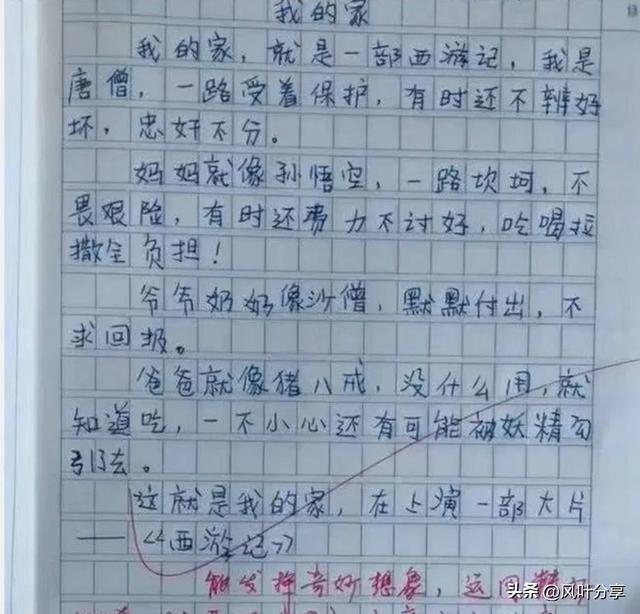 我的家
我的家，就是一部西游记，我是
唐僧，一路受着保护，有时还不辨好
坏，忠奸不分。
妈妈就像孙悟空，一路坎坷，不
畏艰险，有时还费力不讨好，吃喝拉
撒全负担！
爷爷奶奶像沙僧，默默付出，不
求回报。
爸爸就像猪八戒，没什么用，就
知道吃，一不小心还有可能被妖精勾
引去。
这就是我的家，在上演一部大片
——《西游记》
能发挥奇妙想象，运用
头条 @风叶分享